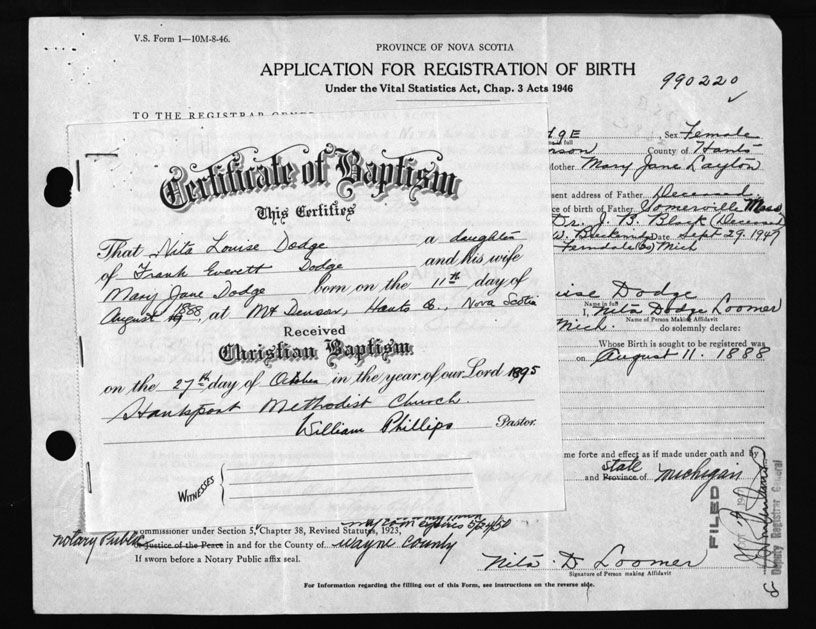 V.S. Form 1—10M-8-46.
PROVINCE OF NOVA SCOTIA
APPLICATION FOR REGISTRATION OF BIRTH
990220
Under the Vital Statistics Act, Chap. 3 Acts 1946
TO THE REGISTRAR
Sex Female
County of Hants
Mother Mary Jane Layton
address of Father Deceased
of birth of Father Somerville Mass
Dr. J. B. Black (Deceased)
Date Sept 29. 1947
Ferndale Mich
Certificate of Baptism
This Certifies
That Nita Louise Dodge a daughter
of Frank Everett Dodge and his wife
Mary Jane Dodge born on the 11th day of
August 1888, at Mt Denson, Hants Co., Nova Scotia
Received
Christian Baptism
on the 27th day of October in the year of our Lord 1895
Hantsport Methodist Church
William Phillips Pastor.
WITNESSES
Dodge
Name in full
I, Nita Dodge Loomer
Name of Person Making Affidavit
Mich. do solemnly declare:
Whose Birth is sought to be registered was
on August 11. 1888
force and effect as if made under oath and by
and Province of state Michigan
FILED
Deputy Registrar General
Commissioner under Section 5, Chapter 38, Revised Statutes, 1923,
Notary Public
or Justice of the Peace in and for the County of Wayne County
If sworn before a Notary Public affix seal.
Nita D Loomer
Signature of Person making Affidavit
For Information regarding the filling out of this Form, see instructions on the reverse side.
8